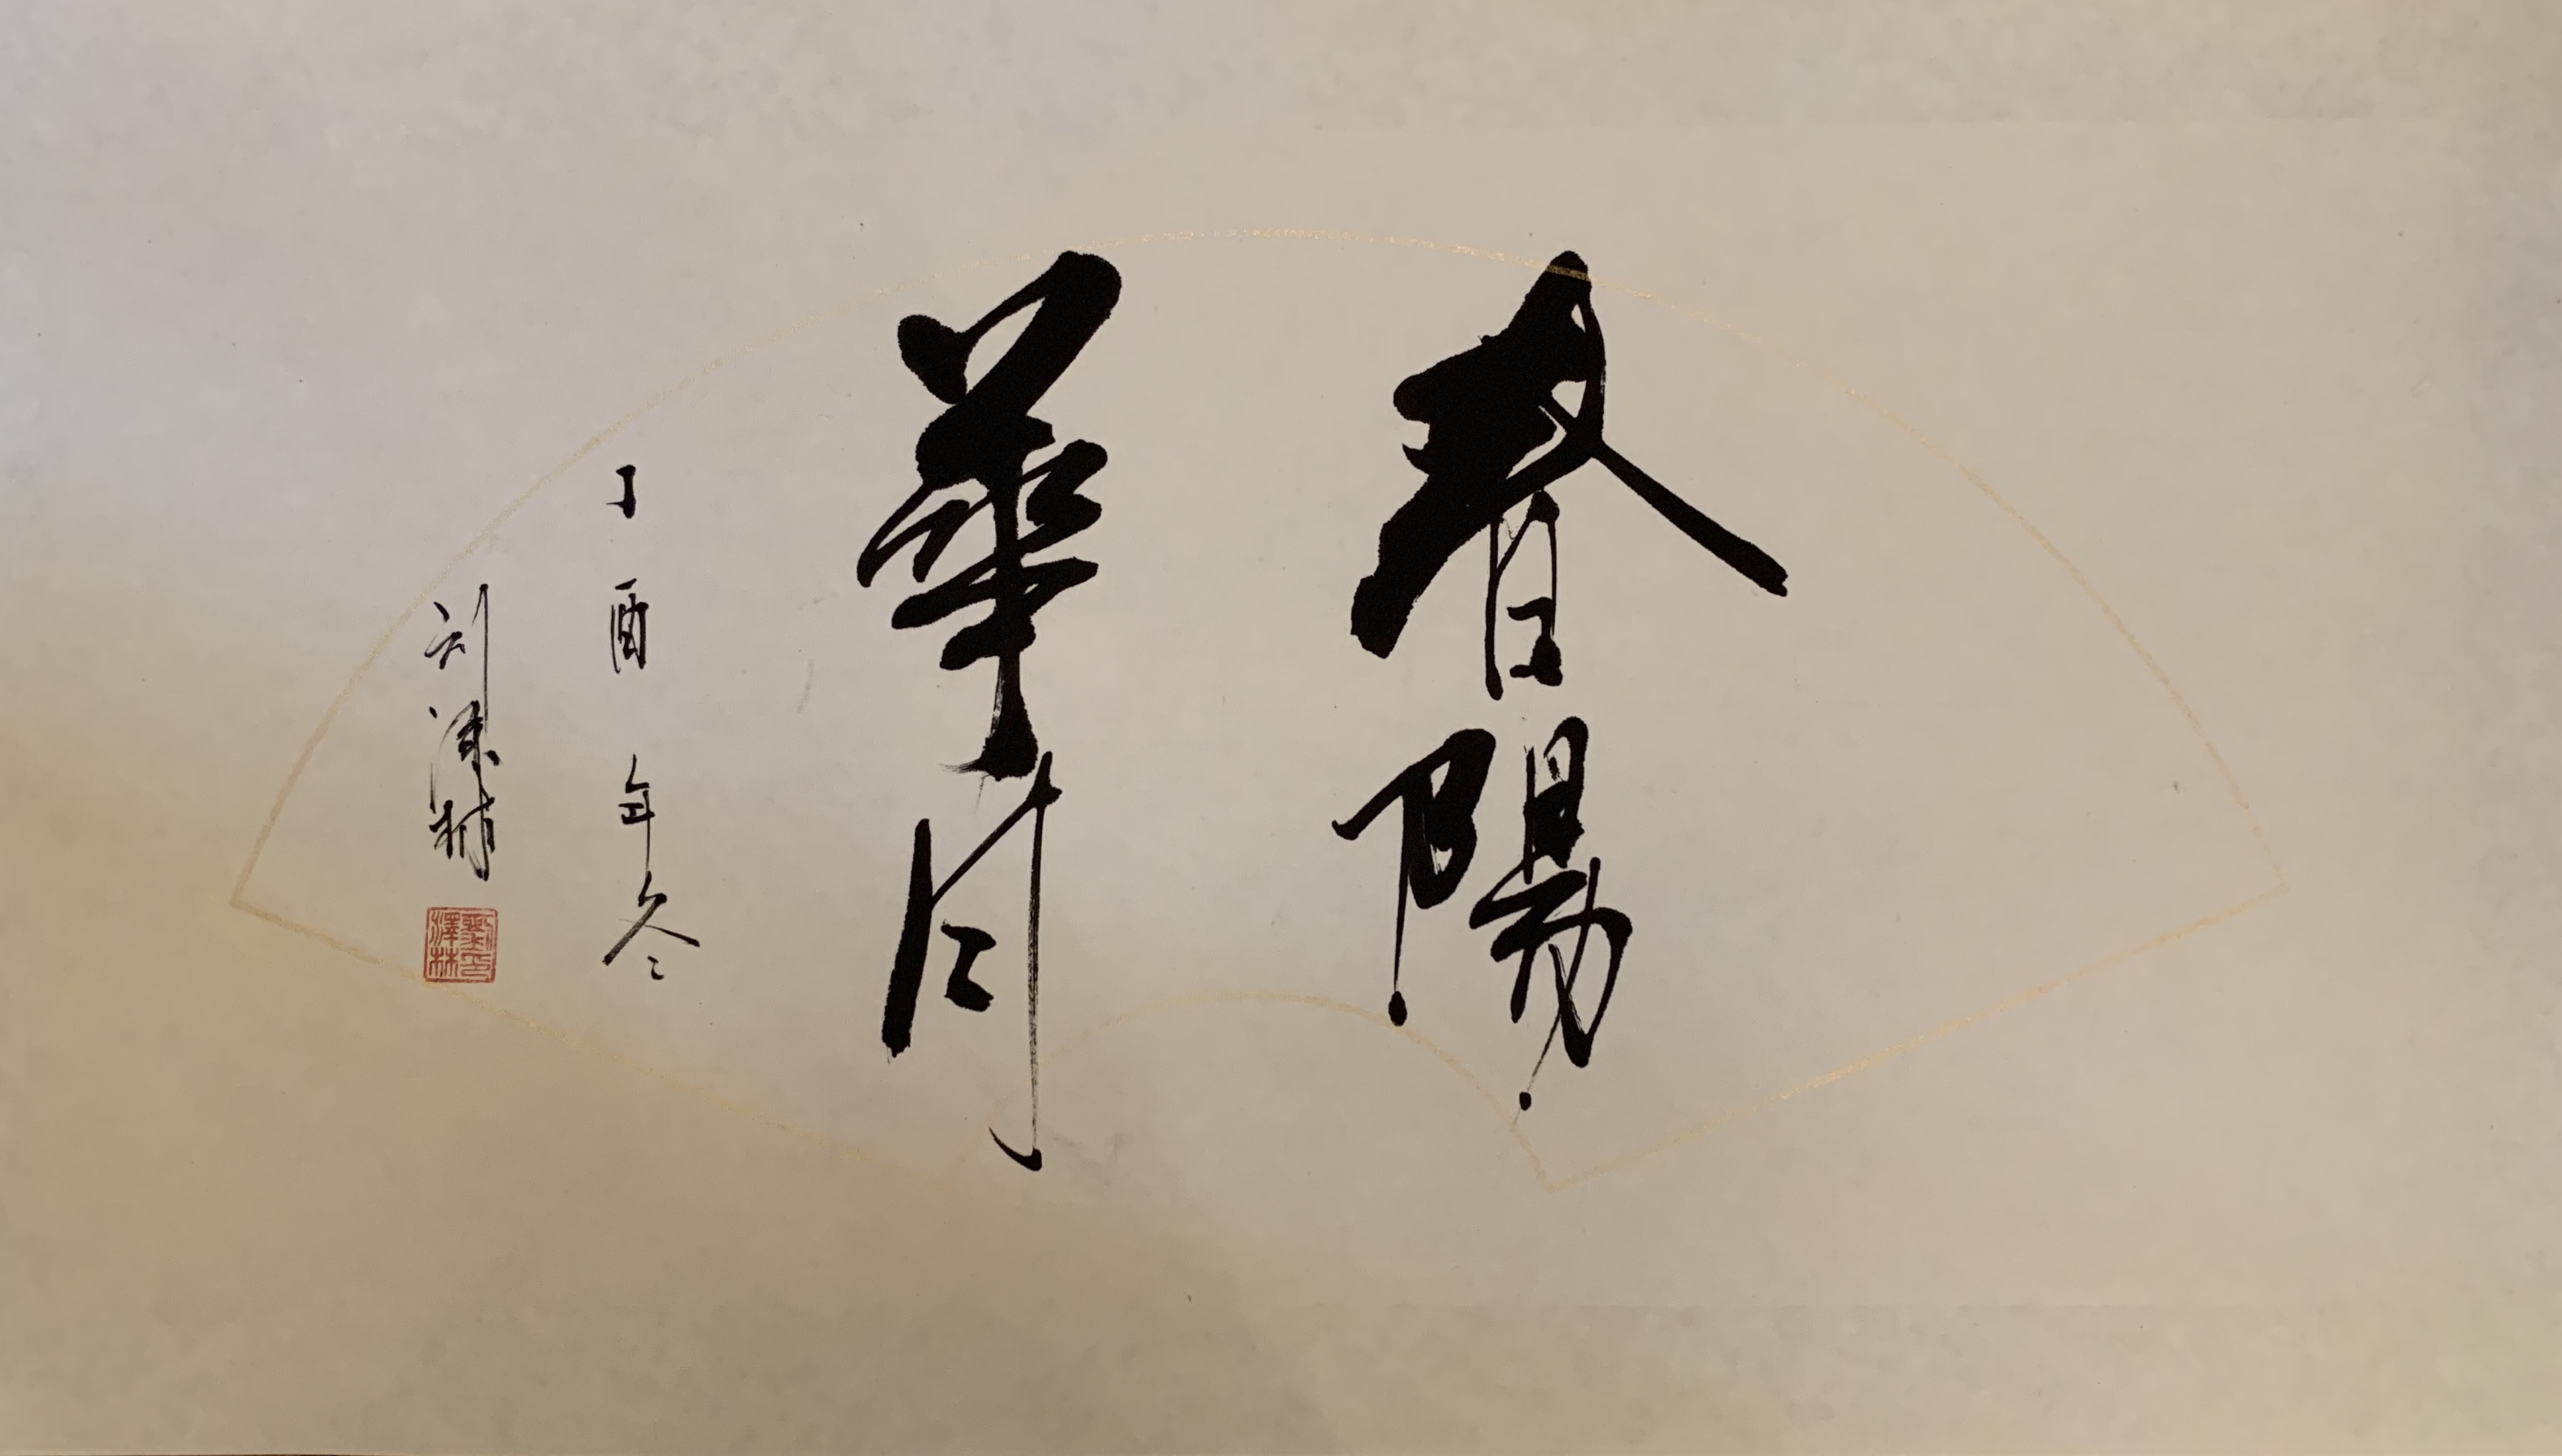 春陽
華月
丁酉年冬
刘泽林
劉印
澤林